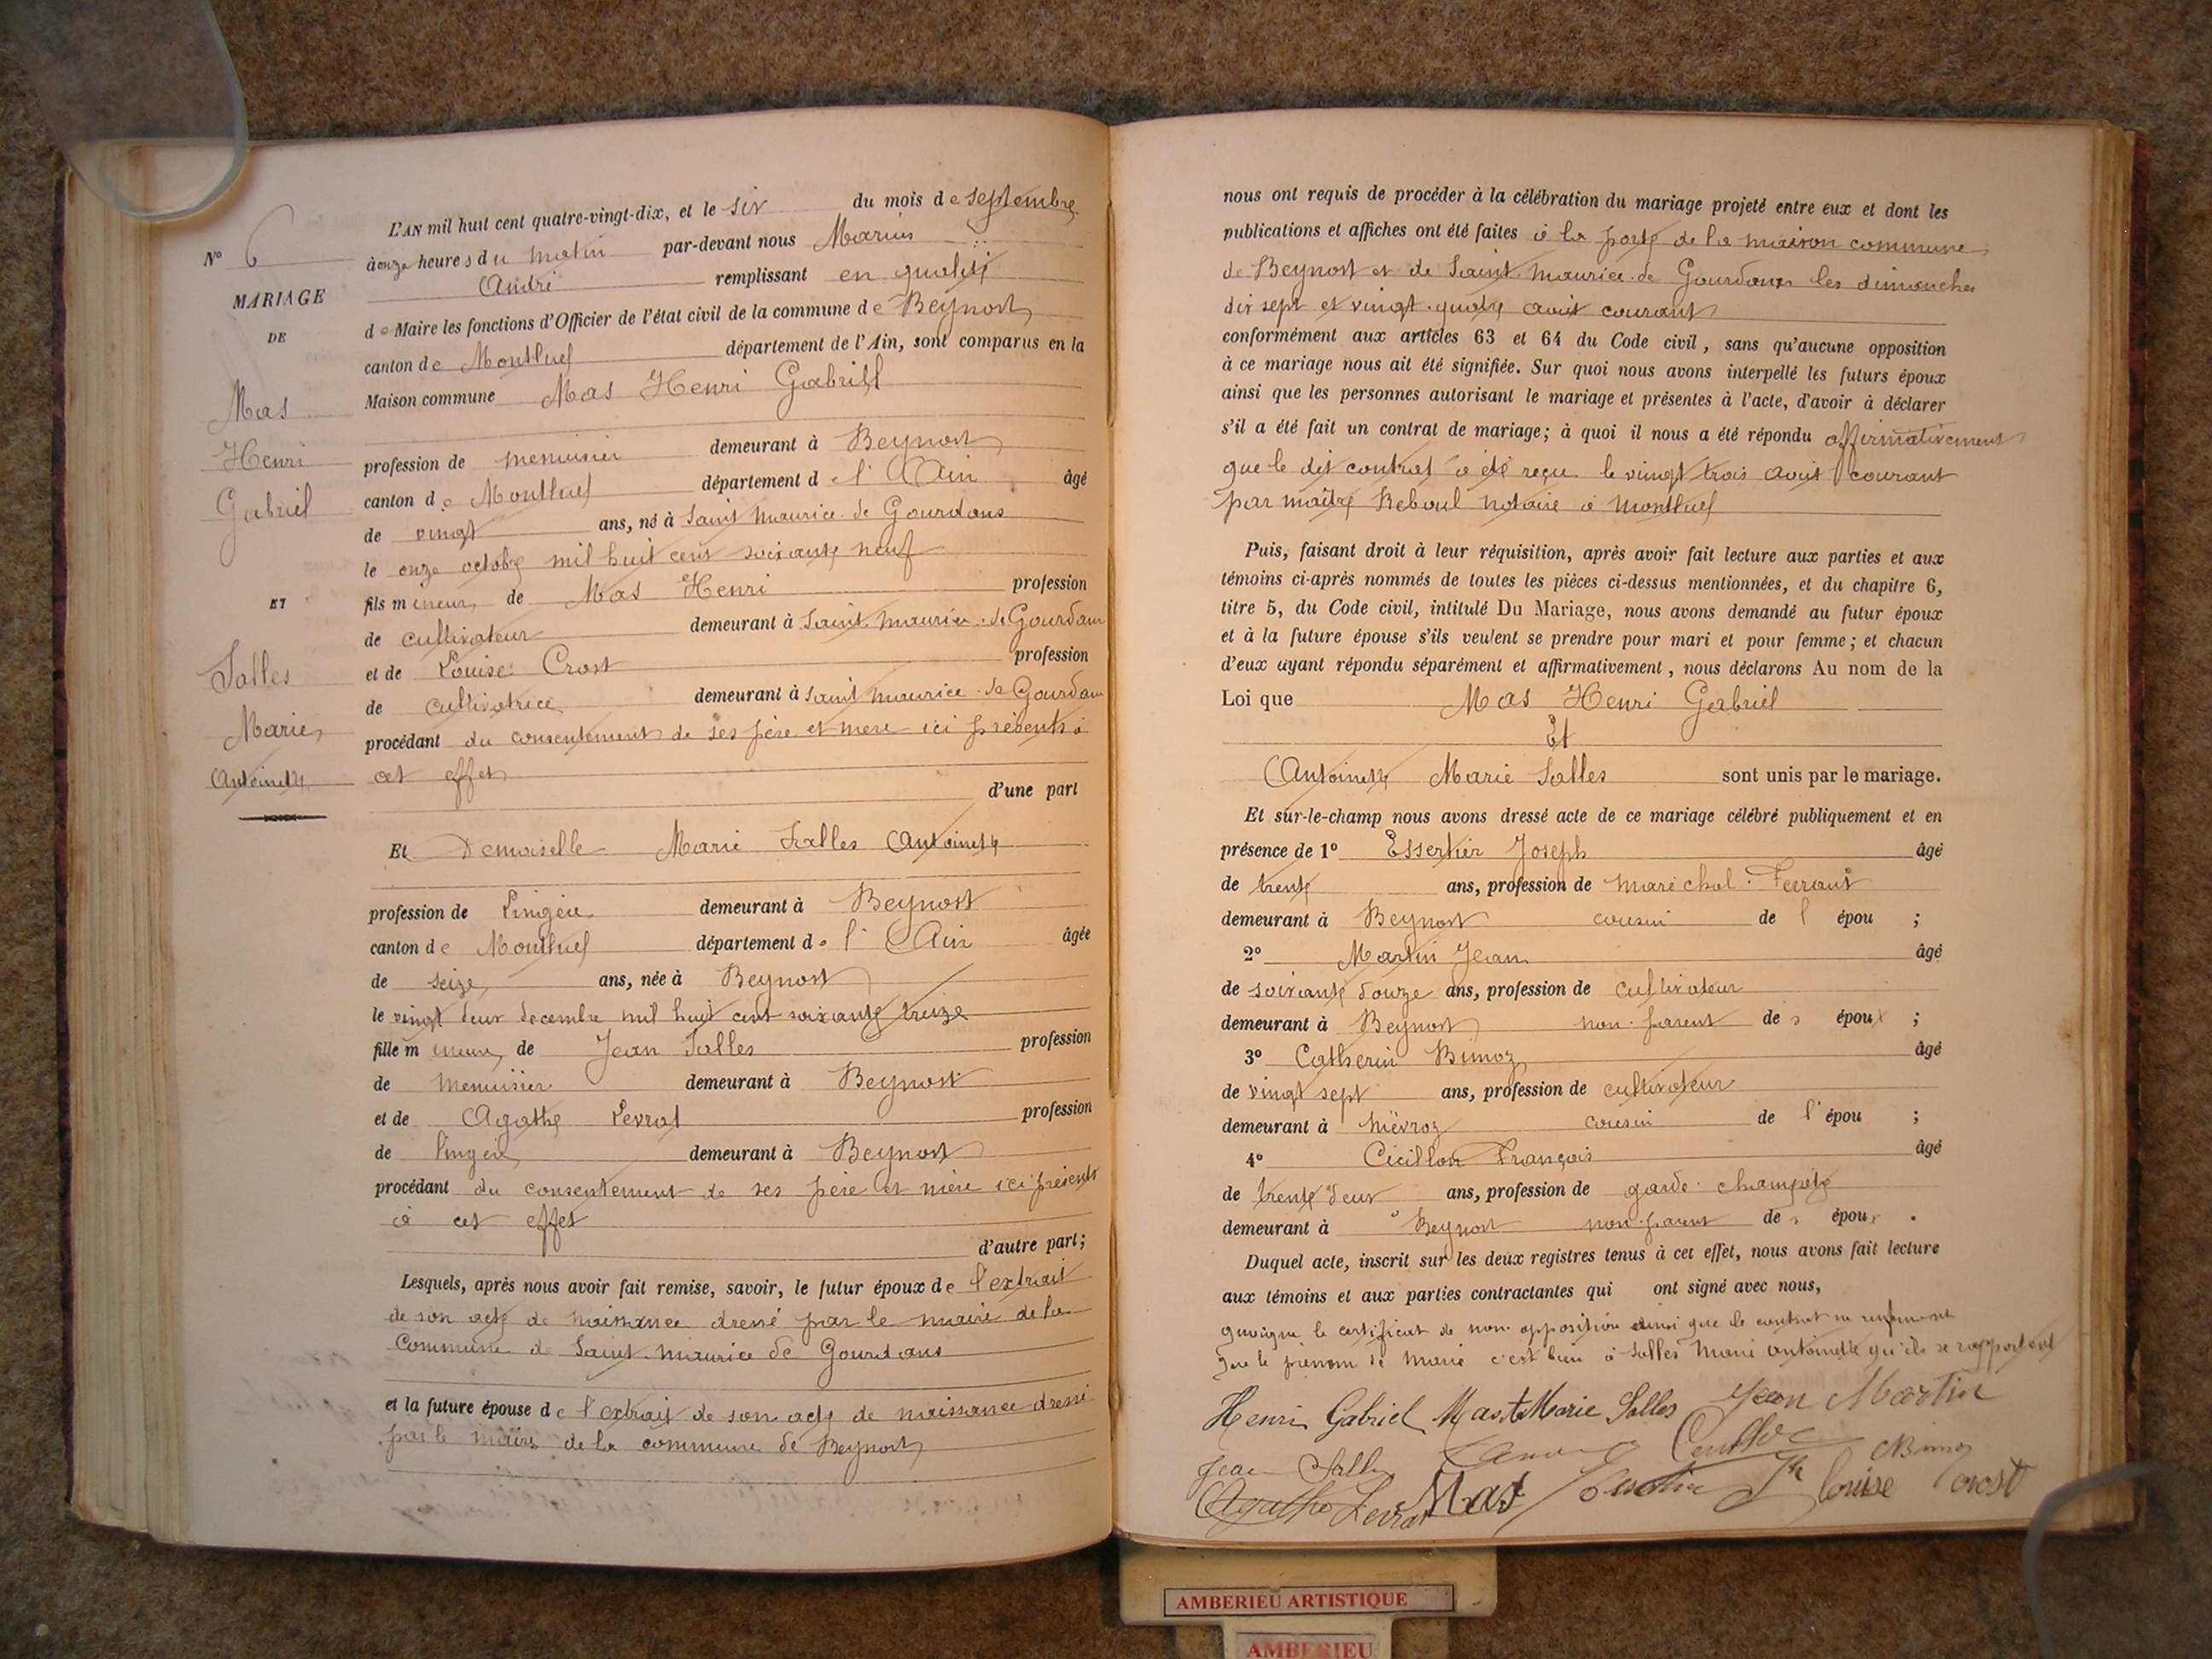 L'AN mil huit cent quatre-vingt-dix, et le six du mois de septembre
à onze heures du matin par-devant nous Marius
André remplissant en qualité
de Maire les fonctions d'Officier de l'état civil de la commune de Beynost
canton de Montluel département de l'Ain, sont comparus en la
Maison commune Mas Henri Gabriel
profession de menuisier demeurant à Beynost
canton de Montluel département de l'Ain âgé
de vingt ans, né à Saint Maurice de Gourdans
le onze octobre mil huit cent soixante neuf
fils mineur de Mas Henri profession
de cultivateur demeurant à Saint Maurice de Gourdans
et de Louise Crost profession
de cultivatrice demeurant à Saint Maurice de Gourdans
procédant du consentement de ses père et mere ici présents à
cet effet
d'une part
Nº 6
MARIAGE
DE
Mas
Henri
Gabriel
ET
Salles
Marie
Antoinette
Et Demoiselle Marie Salles Antoinette
profession de Lingère demeurant à Beynost
canton de Montluel département de l'Ain âgée
de seize ans, née à Beynost
le vingt deux decembre mil huit cent soixante treize
fille mineure de Jean Salles profession
de menuisier demeurant à Beynost
et de Agathe Levrat profession
de lingère demeurant à Beynost
procédant du consentement de ses père et mère ici présents
à cet effet
d'autre part;
Lesquels, après nous avoir fait remise, savoir, le futur époux de l'extrait
de son acte de naissance dressé par le maire de la
commune de Saint Maurice de Gourdans
et la future épouse de l'extrait de son acte de naissance dressé
par le maire de la commune de Beynost
nous ont requis de procéder à la célébration du mariage projeté entre eux et dont les
publications et affiches ont été faites à la porte de la maison commune
de Beynost et de Saint Maurice de Gourdans les dimanches
dix sept et vingt quatre août courant
conformément aux articles 63 et 64 du Code civil, sans qu'aucune opposition
à ce mariage nous ait été signifiée. Sur quoi nous avons interpellé les futurs époux
ainsi que les personnes autorisant le mariage et présentes à l'acte, d'avoir à déclarer
s'il a été fait un contrat de mariage; à quoi il nous a été répondu affirmativement
que le dit contrat a été reçu le vingt trois août courant
par maître Reboul notaire à Montluel
Puis, faisant droit à leur réquisition, après avoir fait lecture aux parties et aux
témoins ci-après nommés de toutes les pièces ci-dessus mentionnées, et du chapitre 6,
titre 5, du Code civil, intitulé Du Mariage, nous avons demandé au futur époux
et à la future épouse s'ils veulent se prendre pour mari et pour femme; et chacun
d'eux ayant répondu séparément et affirmativement, nous déclarons Au nom de la
Loi que Mas Henri Gabriel
Et
Antoinette Marie Salles sont unis par le mariage.
Et sur-le-champ nous avons dressé acte de ce mariage célébré publiquement et en
présence de 1º Essertier Joseph âgé
de trente ans, profession de maréchal-Ferrant
demeurant à Beynost cousin de l'épou ;
2º Martin Jean âgé
de soixante douze ans, profession de cultivateur
demeurant à Beynost non parent des époux ;
3º Catherin Bimoz âgé
de vingt sept ans, profession de cultivateur
demeurant à Niévroz cousin de l'épou ;
4º Cicillon François âgé
de trente deux ans, profession de garde champêtre
demeurant à Beynost non parent des époux .
Duquel acte, inscrit sur les deux registres tenus à cet effet, nous avons fait lecture
aux témoins et aux parties contractantes qui ont signé avec nous,
quoique le certificat de non opposition ainsi que le contrat ne renferment
que le prénom de Marie c'est bien à Salles Marie antoinette qu'ils se rapportent
Henri Gabriel Mas Marie Salles Jean Martin
Jean Salles Bimoz
Agathe Levrat Mas louise crost
AMBERIEU ARTISTIQUE
AMBERIEU